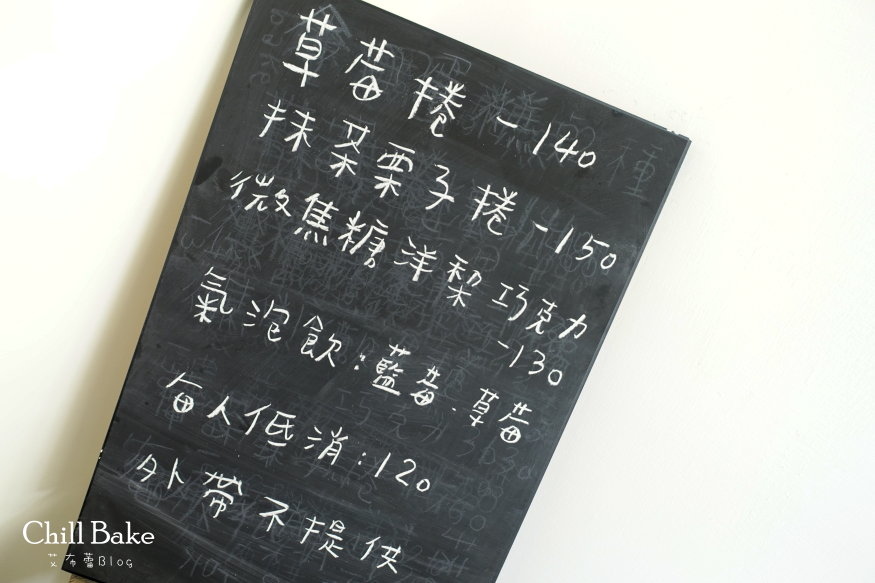 草莓捲 - 140
抹茶栗子捲 - 150
微焦糖洋梨巧克力
- 130
氣泡飲：藍莓、草莓
每人低消：120
外帶不提供
Chill Bake
艾布蕾Blog